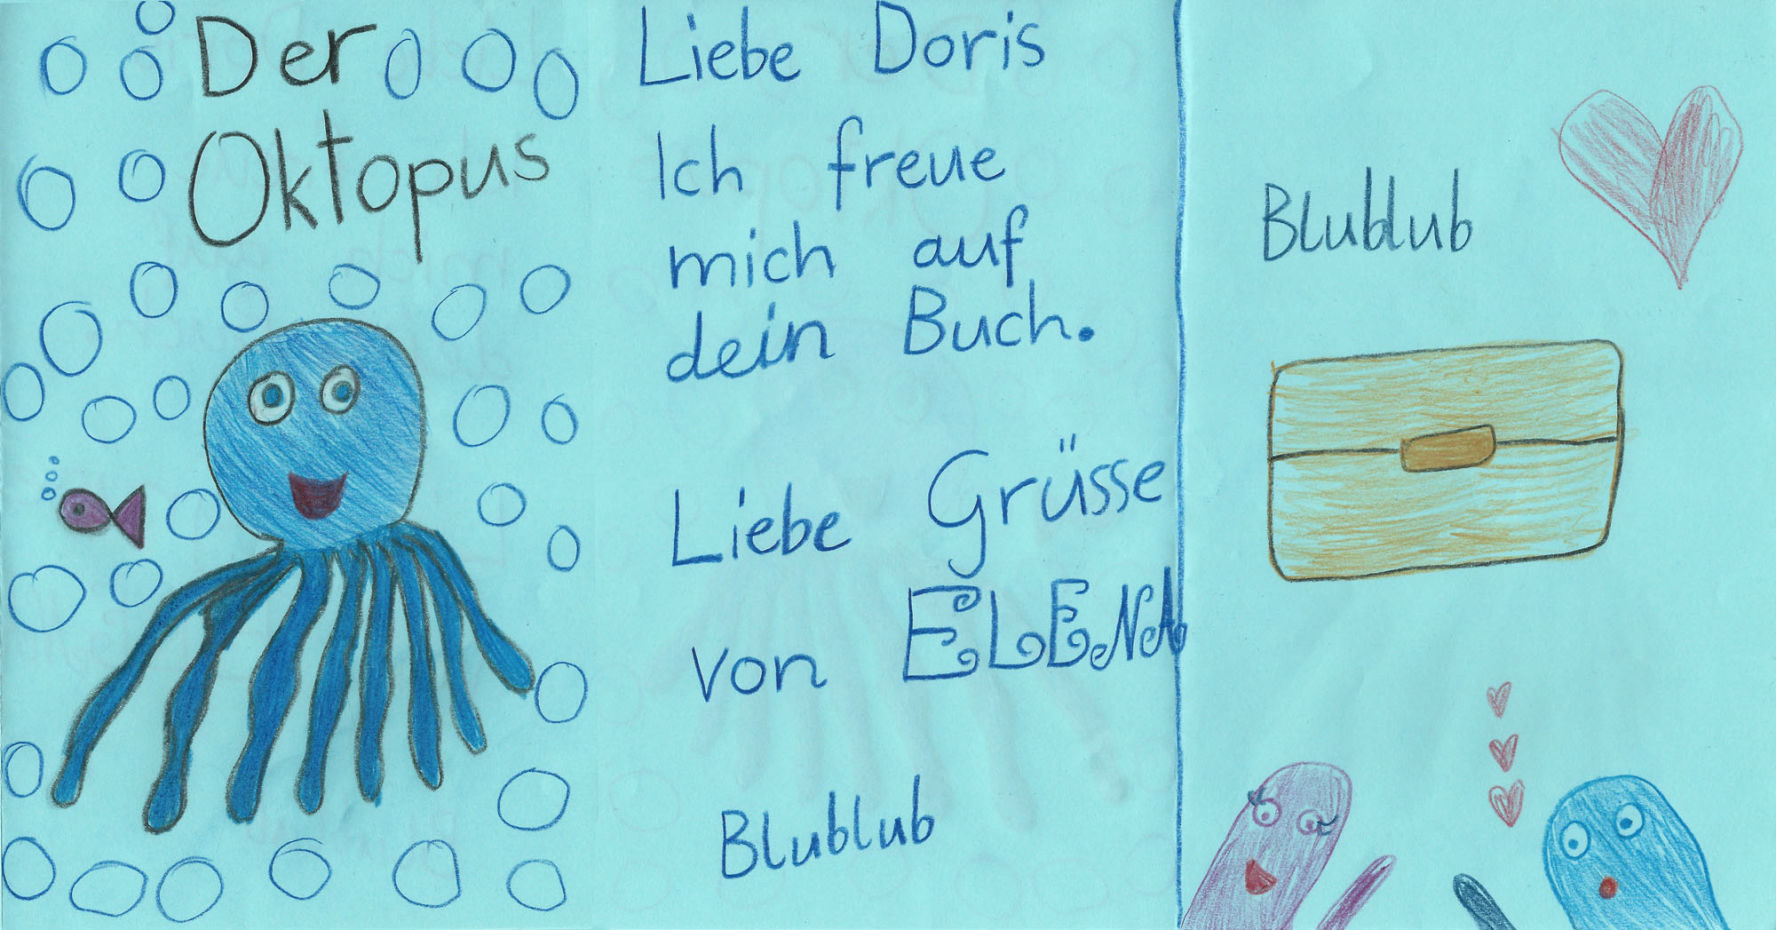 Der
Oktopus
Liebe Doris
Ich freue
mich auf
dein Buch.
Liebe Grüsse
von ELENA
Blublub
Blublub